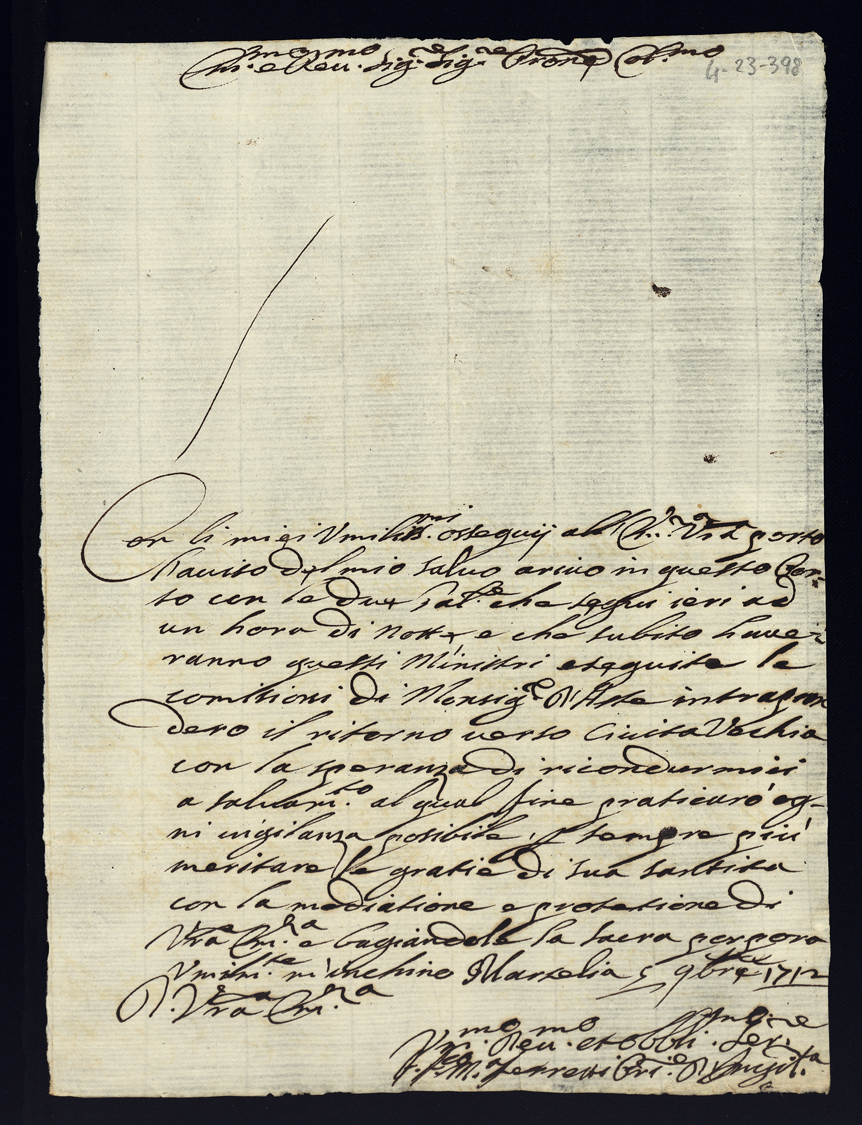 Em.mo e Reu.mo Sig.re Sig.re Prone Col.mo
4-23-398
Con li miei Vmiliss.mi ossequij all Em.za Vra porto
l'auiso del mio saluo ariuo in questo Por-
to con le due Gal.re che segui ieri ad
un hora di notte, e che subito haue-
ranno questi Ministri eseguite le
comissioni di Monsig.re d'Aste intrapren
dero il ritorno verso Ciuita Vechia
con la speranza di ricondurmici
a saluam.to al qual fine praticarò og-
ni uigilanza possibile, p sempre più
meritare le gratie di sua santita
con la mediatione e protetione di
Vra Em.za e bagiandole la sacra porpora
Vmilm.te m'inchino Marselia 5 9bre 1712
D. Vra Em.za
Vm.mo Deu.mo et obbl.mo Ser.re
Ferretti